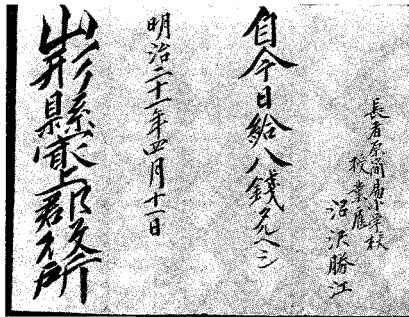 長者原簡易小学校
授業雇
沼沢勝江
自今日給八錢ヘシ
明治二十一年四月十一日
山形縣最上郡役所